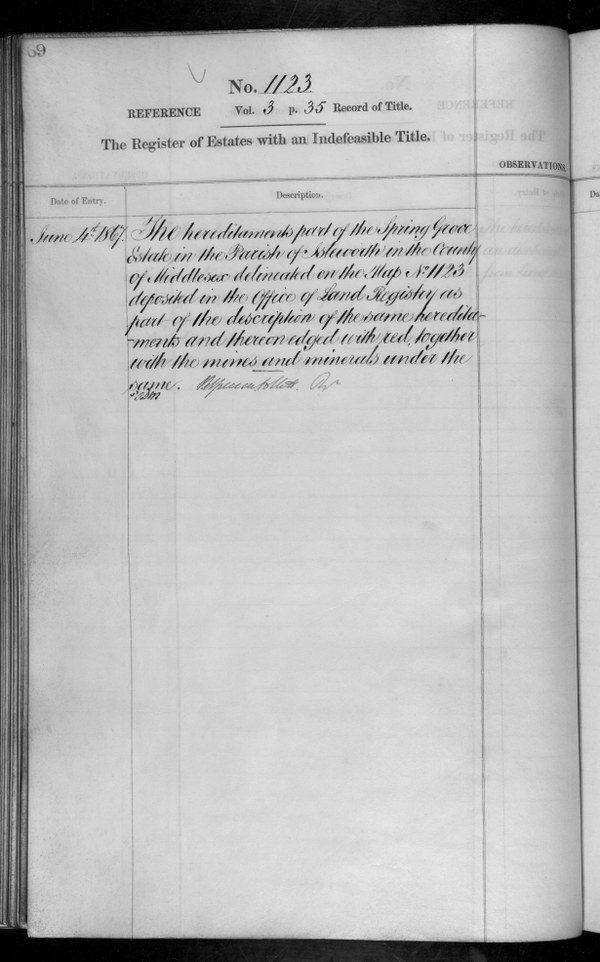 69
No. 1123
REFERENCE Vol. 3 p. 35 Record of Title.
The Register of Estates with an Indefeasible Title.
OBSERVATIONS
Date of Entry. Description.
June 4th 1867. The hereditaments part of the Spring Grove
Estate in the Parish of Isleworth in the County
of Middlesex delineated on the Map No. 1123
deposited in the Office of Land Registry as
part of the description of the same heredita-
-ments and thereon edged with red, together
with the mines and minerals under the
same.